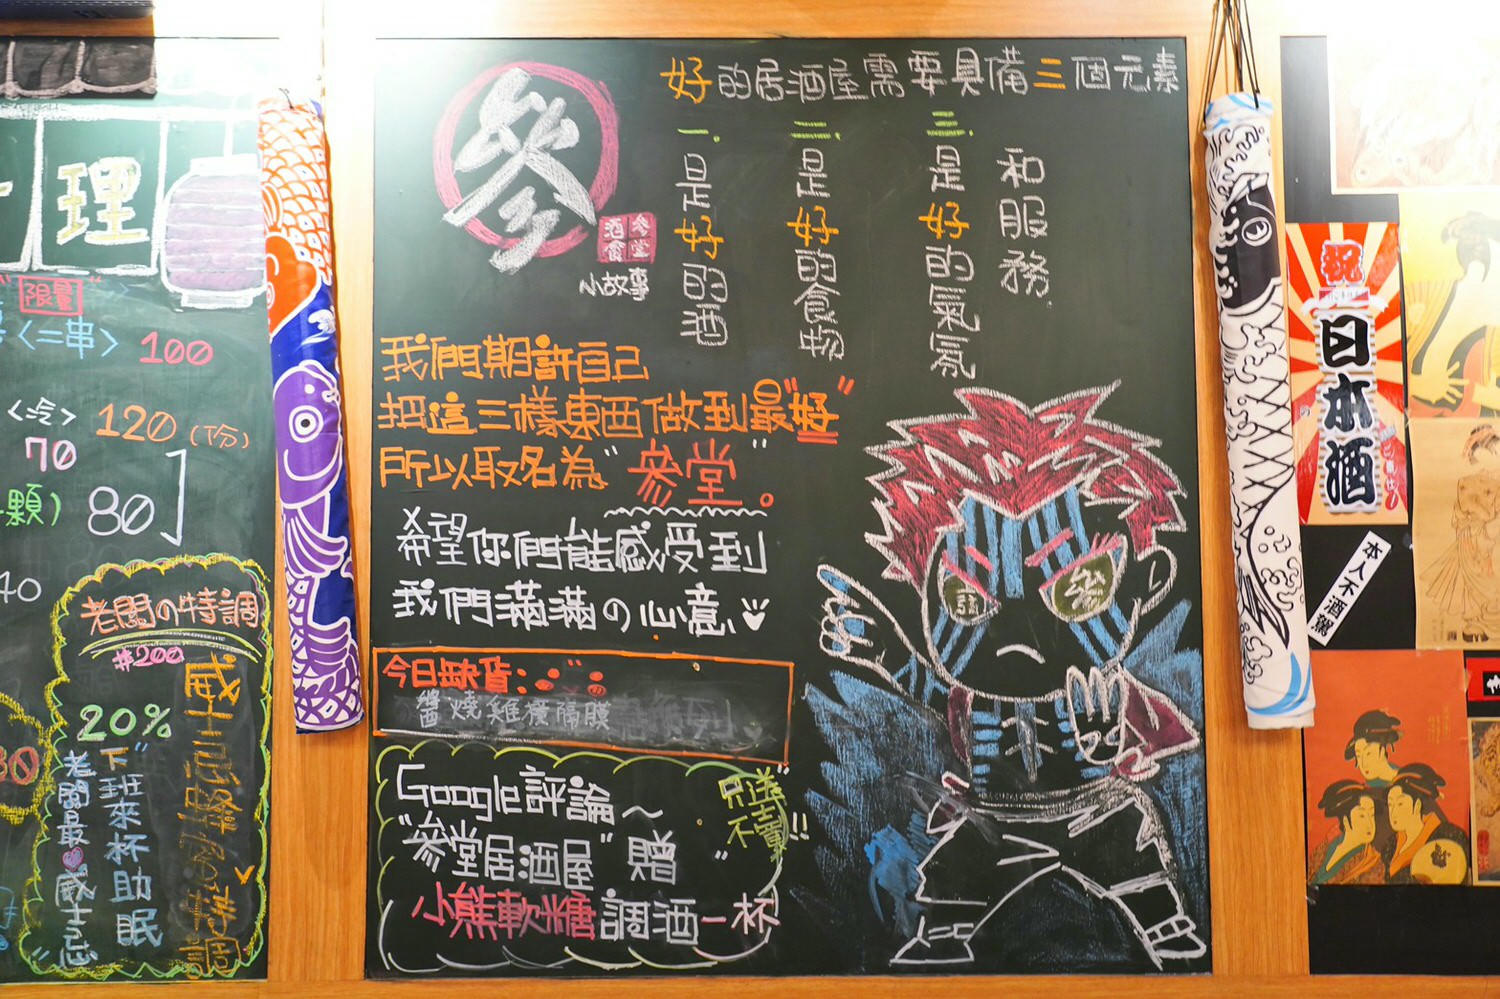 理
限量
〈二串〉 100
〈冷〉 120 (下份)
70
顆) 80
40
老闆の特調
$200
威士忌
20%
下班來杯助眠
老闆最 威士忌
參
參堂
酒食
小故事
好的居酒屋需要具備三個元素
一.是好的酒
二.是好的食物
三.是好的氣氛
和服務
我們期許自己
把這三樣東西做到最"好"
所以取名為"參堂"。
希望你們能感受到
我們滿滿の心意
今日缺貨:
醬燒雞橫隔膜
Google評論~
"參堂居酒屋"贈
小熊軟糖調酒一杯"
只送不賣!!
參
祝
日本酒
本人不酒駕